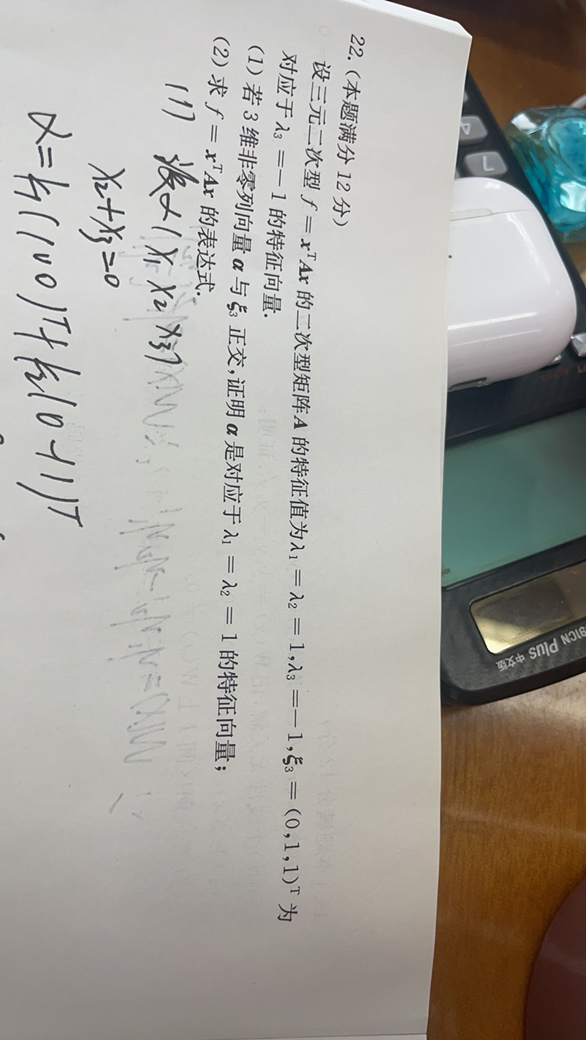 22. (本题满分 12 分)
设三元二次型 f = xᵀAx 的二次型矩阵 A 的特征值为 λ₁ = λ₂ = 1, λ₃ = −1, ξ₃ = (0,1,1)ᵀ 为
对应于 λ₃ = −1 的特征向量.
(1) 若 3 维非零列向量 α 与 ξ₃ 正交, 证明 α 是对应于 λ₁ = λ₂ = 1 的特征向量;
(2) 求 f = xᵀAx 的表达式.
(1) 设 α (x₁ x₂ x₃)
x₂+x₃=0
α = k₁(1 0 0)ᵀ + k₂(0 -1 1)ᵀ
91CN Plus 中文版